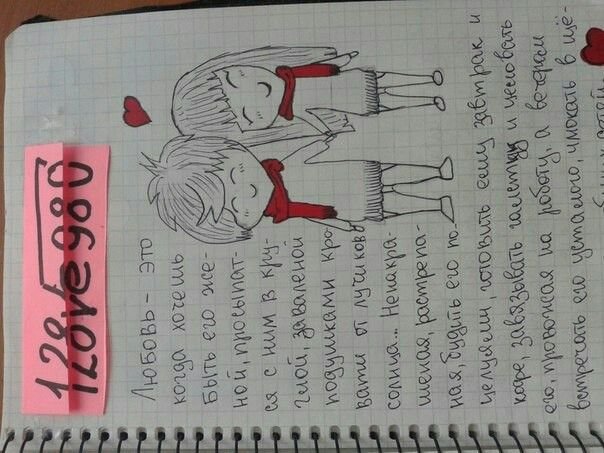 128√e980
Любовь – это
когда хочешь
быть его же-
ной, просыпат-
ся с ним в кру-
глой, заваленой
подушками кро-
вати от лучиков
солнца... Ненакра-
шеная, растрепа-
ная, будить его по-
целуями, готовить ему завтрак и
кофе, завязывать галстук и целовать
его, провожая на роботу, а вечером
встречать его усталого, чмокать в щё-